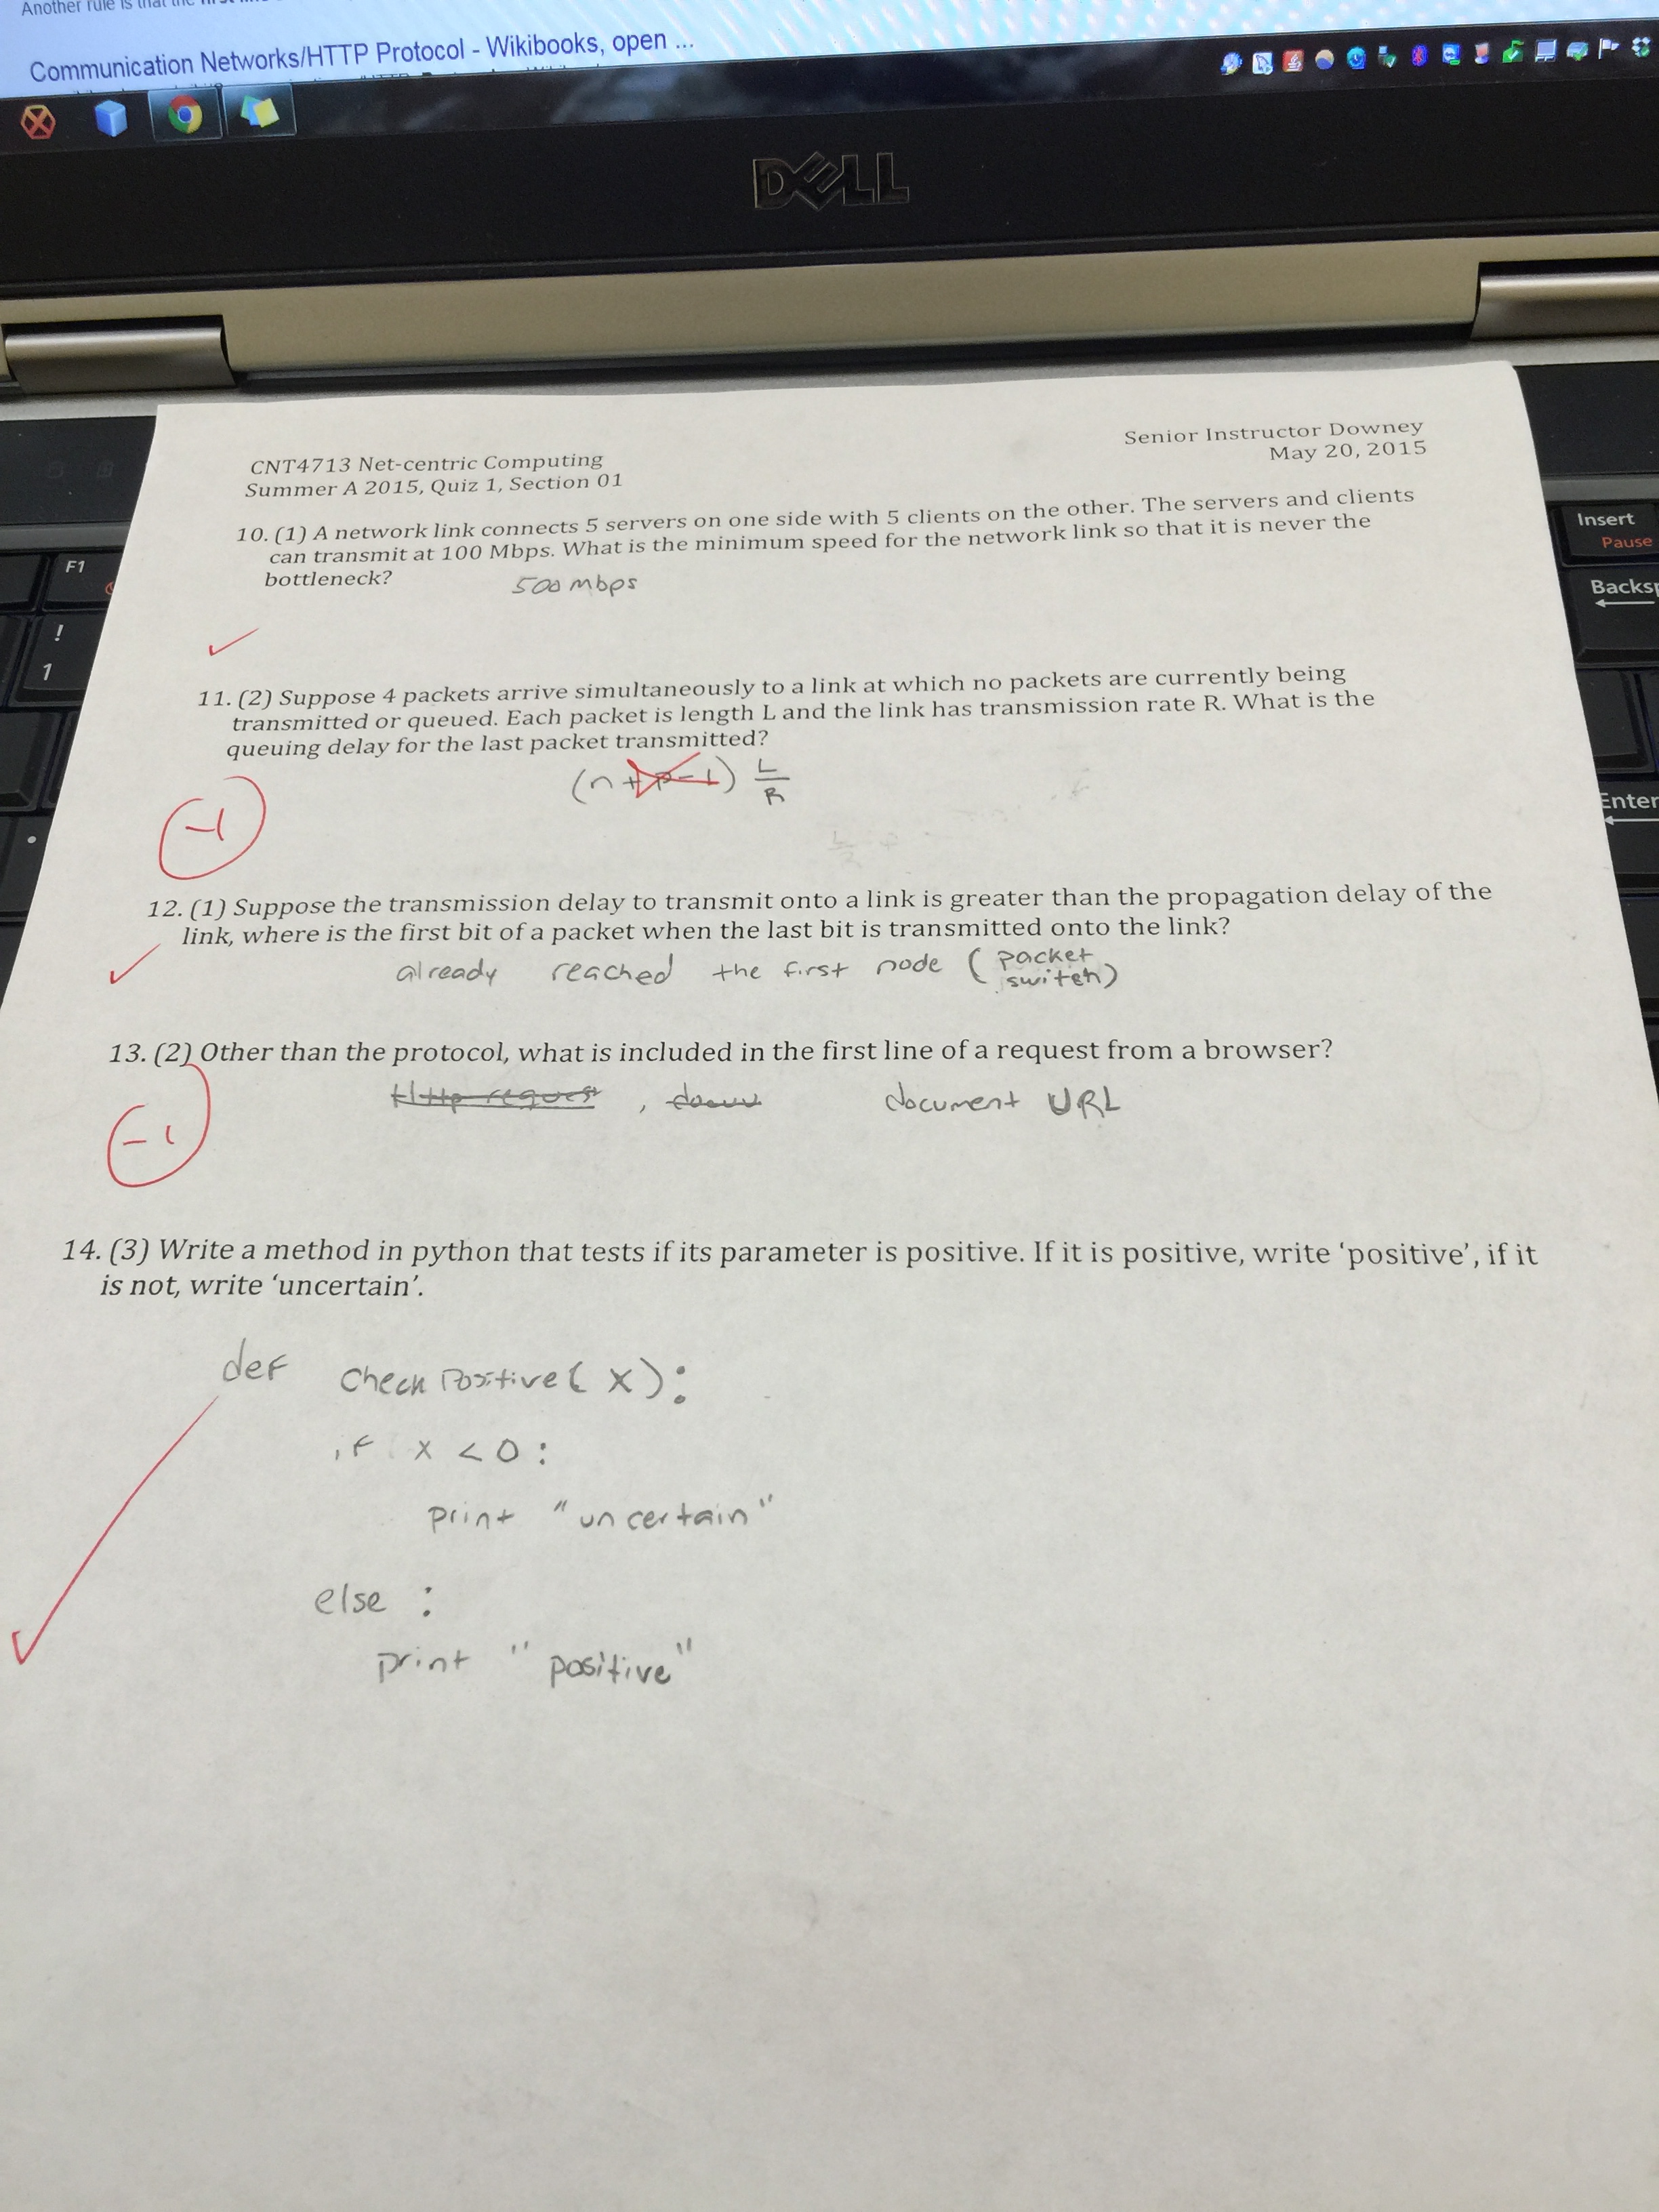 Another rule is that the
Communication Networks/HTTP Protocol - Wikibooks, open ...
DELL
Insert
Pause
Backsp
Enter
F1
!
1
Senior Instructor Downey
May 20, 2015
CNT4713 Net-centric Computing
Summer A 2015, Quiz 1, Section 01
10. (1) A network link connects 5 servers on one side with 5 clients on the other. The servers and clients
can transmit at 100 Mbps. What is the minimum speed for the network link so that it is never the
bottleneck?
500 mbps
11. (2) Suppose 4 packets arrive simultaneously to a link at which no packets are currently being
transmitted or queued. Each packet is length L and the link has transmission rate R. What is the
queuing delay for the last packet transmitted?
(n+p-1) L/R
-1
12. (1) Suppose the transmission delay to transmit onto a link is greater than the propagation delay of the
link, where is the first bit of a packet when the last bit is transmitted onto the link?
already reached the first node (packet
switch)
13. (2) Other than the protocol, what is included in the first line of a request from a browser?
Http request, document URL
-1
14. (3) Write a method in python that tests if its parameter is positive. If it is positive, write ‘positive’, if it
is not, write ‘uncertain’.
def checkPositive(x):
if x <0:
print "uncertain"
else :
print "positive"